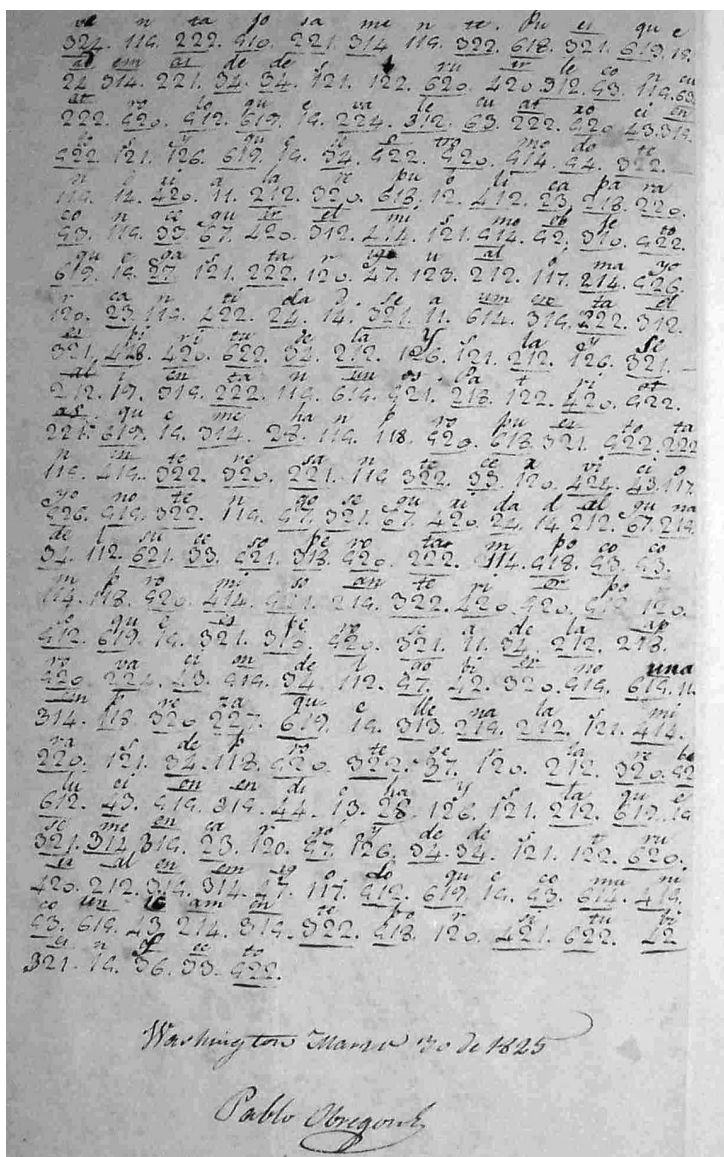 ve n ta jo sa me n te. Pu es qu e
324. 119. 222. 910. 221. 314 119. 322. 618. 321. 619. 19.
ad em as de de s t ru ir le co n cu
24. 314. 221. 34. 34. 121. 122. 620. 420. 312. 93. 119. 63.
at ro lo qu e va le cu at ro ci en
222. 920. 912. 619. 19. 224. 312. 63. 222. 920. 43. 319.
to s y qu e de s tro mo do te
922. 121. 126. 619. 19. 34. 922. 920. 914. 94. 322.
n d ri a la re pu b li ca pa ra
119. 14. 420. 11. 212. 320. 618. 12. 412. 23. 218. 220.
co n ce gu ir el mi s mo ob je to
93. 119. 33. 67. 420. 312. 414. 121. 914. 92. 310. 922.
qu e ga s ta r ig u al o ma yo
619. 19. 27. 121. 222. 120. 47. 123. 212. 117. 214. 926.
r ca n ti da d. se a um en ta el
120. 23. 119. 422. 24. 14. 321. 11. 614. 319. 222. 312.
es pi ri tu de la y s la y se
321. 428. 420. 622. 34. 212. 126. 121. 212. 126. 321.
al i en ta n un os. Pa t ri ot
212. 19. 319. 222. 119. 619. 921. 218. 122. 420. 922.
as. qu e me ha n p ro pu es to ta
221. 619. 19. 314. 28. 119. 118. 920. 618. 321. 922. 222
n in te re sa n te ce r vi ci o
119. 419. 322. 320. 221. 119. 322. 33. 120. 424. 43. 117.
yo no te n go se gu ri da d al gu na
926. 919. 322. 119. 97. 321. 67. 420. 24. 14. 212. 67. 219.
de l su ce so pe ro tam m po co co
34. 112. 621. 33. 921. 318. 920. 222. 114. 918. 93. 93.
m p ro mi so an te ri or po
114. 118. 920. 414. 921. 219. 322. 420. 920. 918. 120.
lo qu e es pe ro se a de la ap
912. 619. 19. 321. 318. 920. 321. 11. 34. 212. 218.
ro va ci on de l go bi er no una
920. 224. 43. 919. 34. 112. 97. 42. 320. 919. 619. 11.
em p re za qu e lle na la s mi
314. 118. 320. 227. 619. 19. 313. 219. 212. 121. 414.
ra s de p ro te ge r la re bo
220. 121. 34. 118. 920. 322. 37. 120. 212. 320. 92
lu ci on en di o ha y s la qu e
612. 43. 919. 319. 44. 13. 28. 126. 121. 212. 619. 19
se me en ca r go y de de s t ru
321. 314. 319. 23. 120. 97. 126. 34. 34. 121. 122. 620.
ir al en em ig o lo qu e co mu ni
420. 212. 319. 314. 47. 117. 912. 619. 19. 93. 614. 419.
co un ic am en te po r si tu bi
93. 619. 43. 214. 319. 322. 918. 120. 421. 622. 42
es n ef ec to
321. 19. 36. 33. 922.
Washington Marzo 30 de 1825
Pablo Obregon